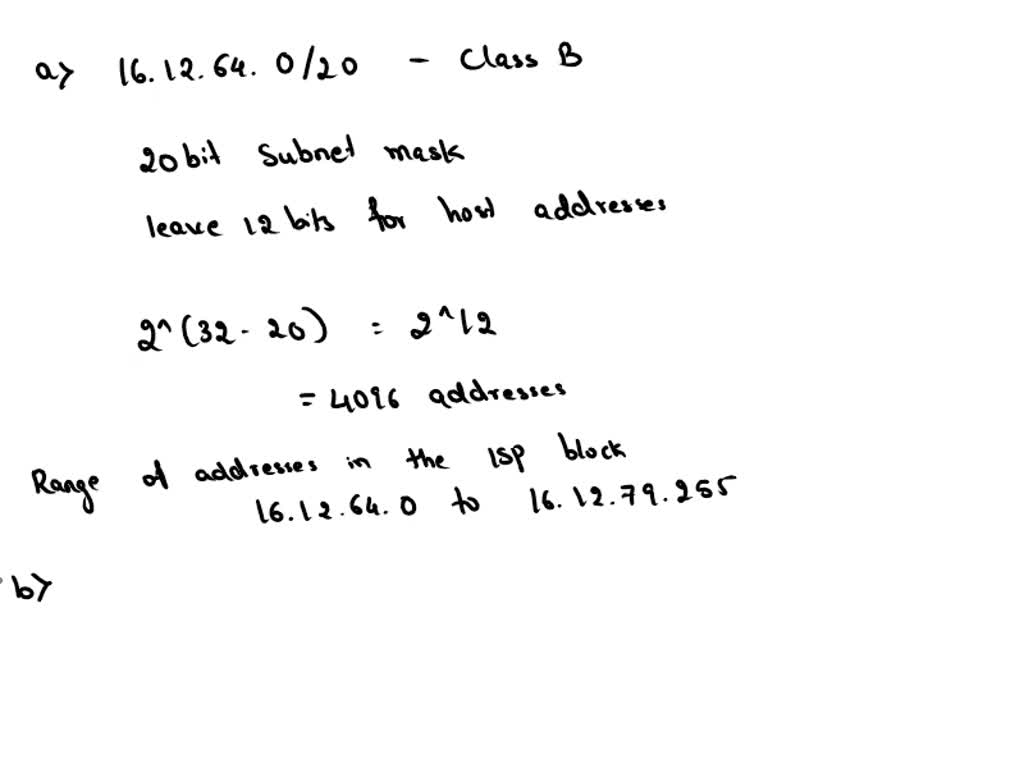 a> 16.12.64.0/20 - Class B
20bit Subnet mask
leave 12 bits for host addresses
2^(32-20) = 2^12
= 4096 addresses
Range of addresses in the ISP block
16.12.64.0 to 16.12.79.255
b>